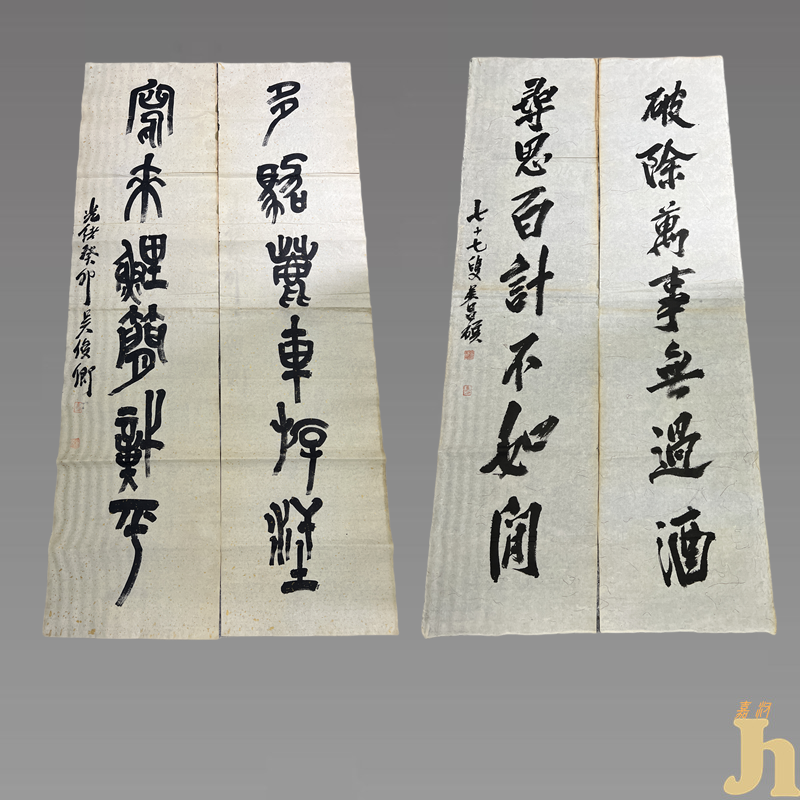 破除萬事無過酒
尋思百計不如閒
七十七叟吳昌碩
多駱車
寫來鯉簡平
光緒癸卯吳俊卿
jh